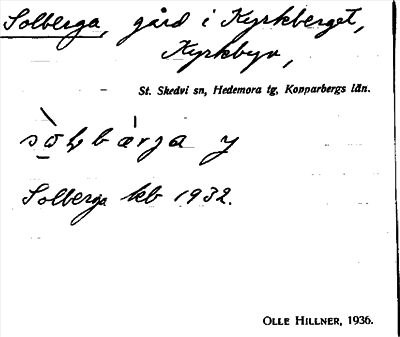 Solberga, gård i Kyrkberget,
Kyrkbyn,
St. Skedvi sn, Hedemora tg, Kopparbergs län.
y
Solberga kb 1932.
OLLE HILLNER, 1936.